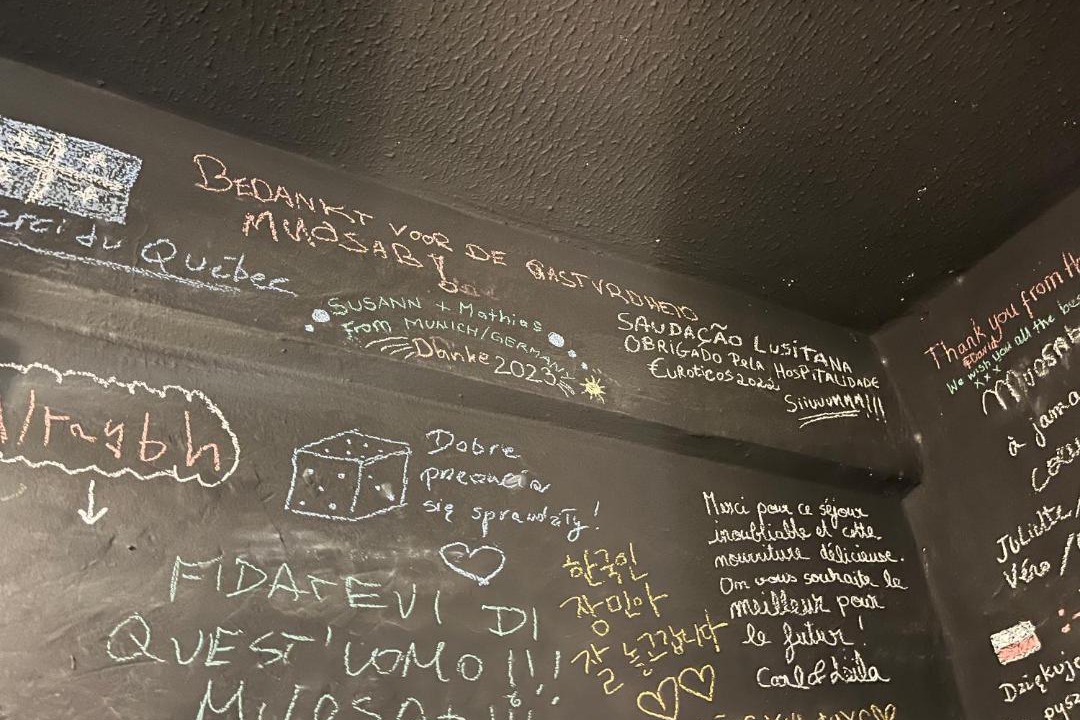 du Québec
BEDANKT VOOR DE GASTVRIJHEID
MUOSAB!
SUSANN + Mathias
From MUNICH/GERMANY
Danke 2023
SAUDAÇÃO LUSITANA
OBRIGADO Pela HOSPITALIDADE
EUROTICOS 2022
SIIUUUMMM!!!
Thank you from
David
We wish you all the best
xxx
à jama
Juliette
Véro
Dobre
się sprawdziły!
FIDATEVI DI
QUEST'UOMO!!!
한국인
장민아
잘 놀고갑니다
Merci pour ce séjour
inoubliable et cette
nourriture délicieuse.
On vous souhaite le
meilleur pour
le futur!
Carl & Leïla
Dziękuje
pysz